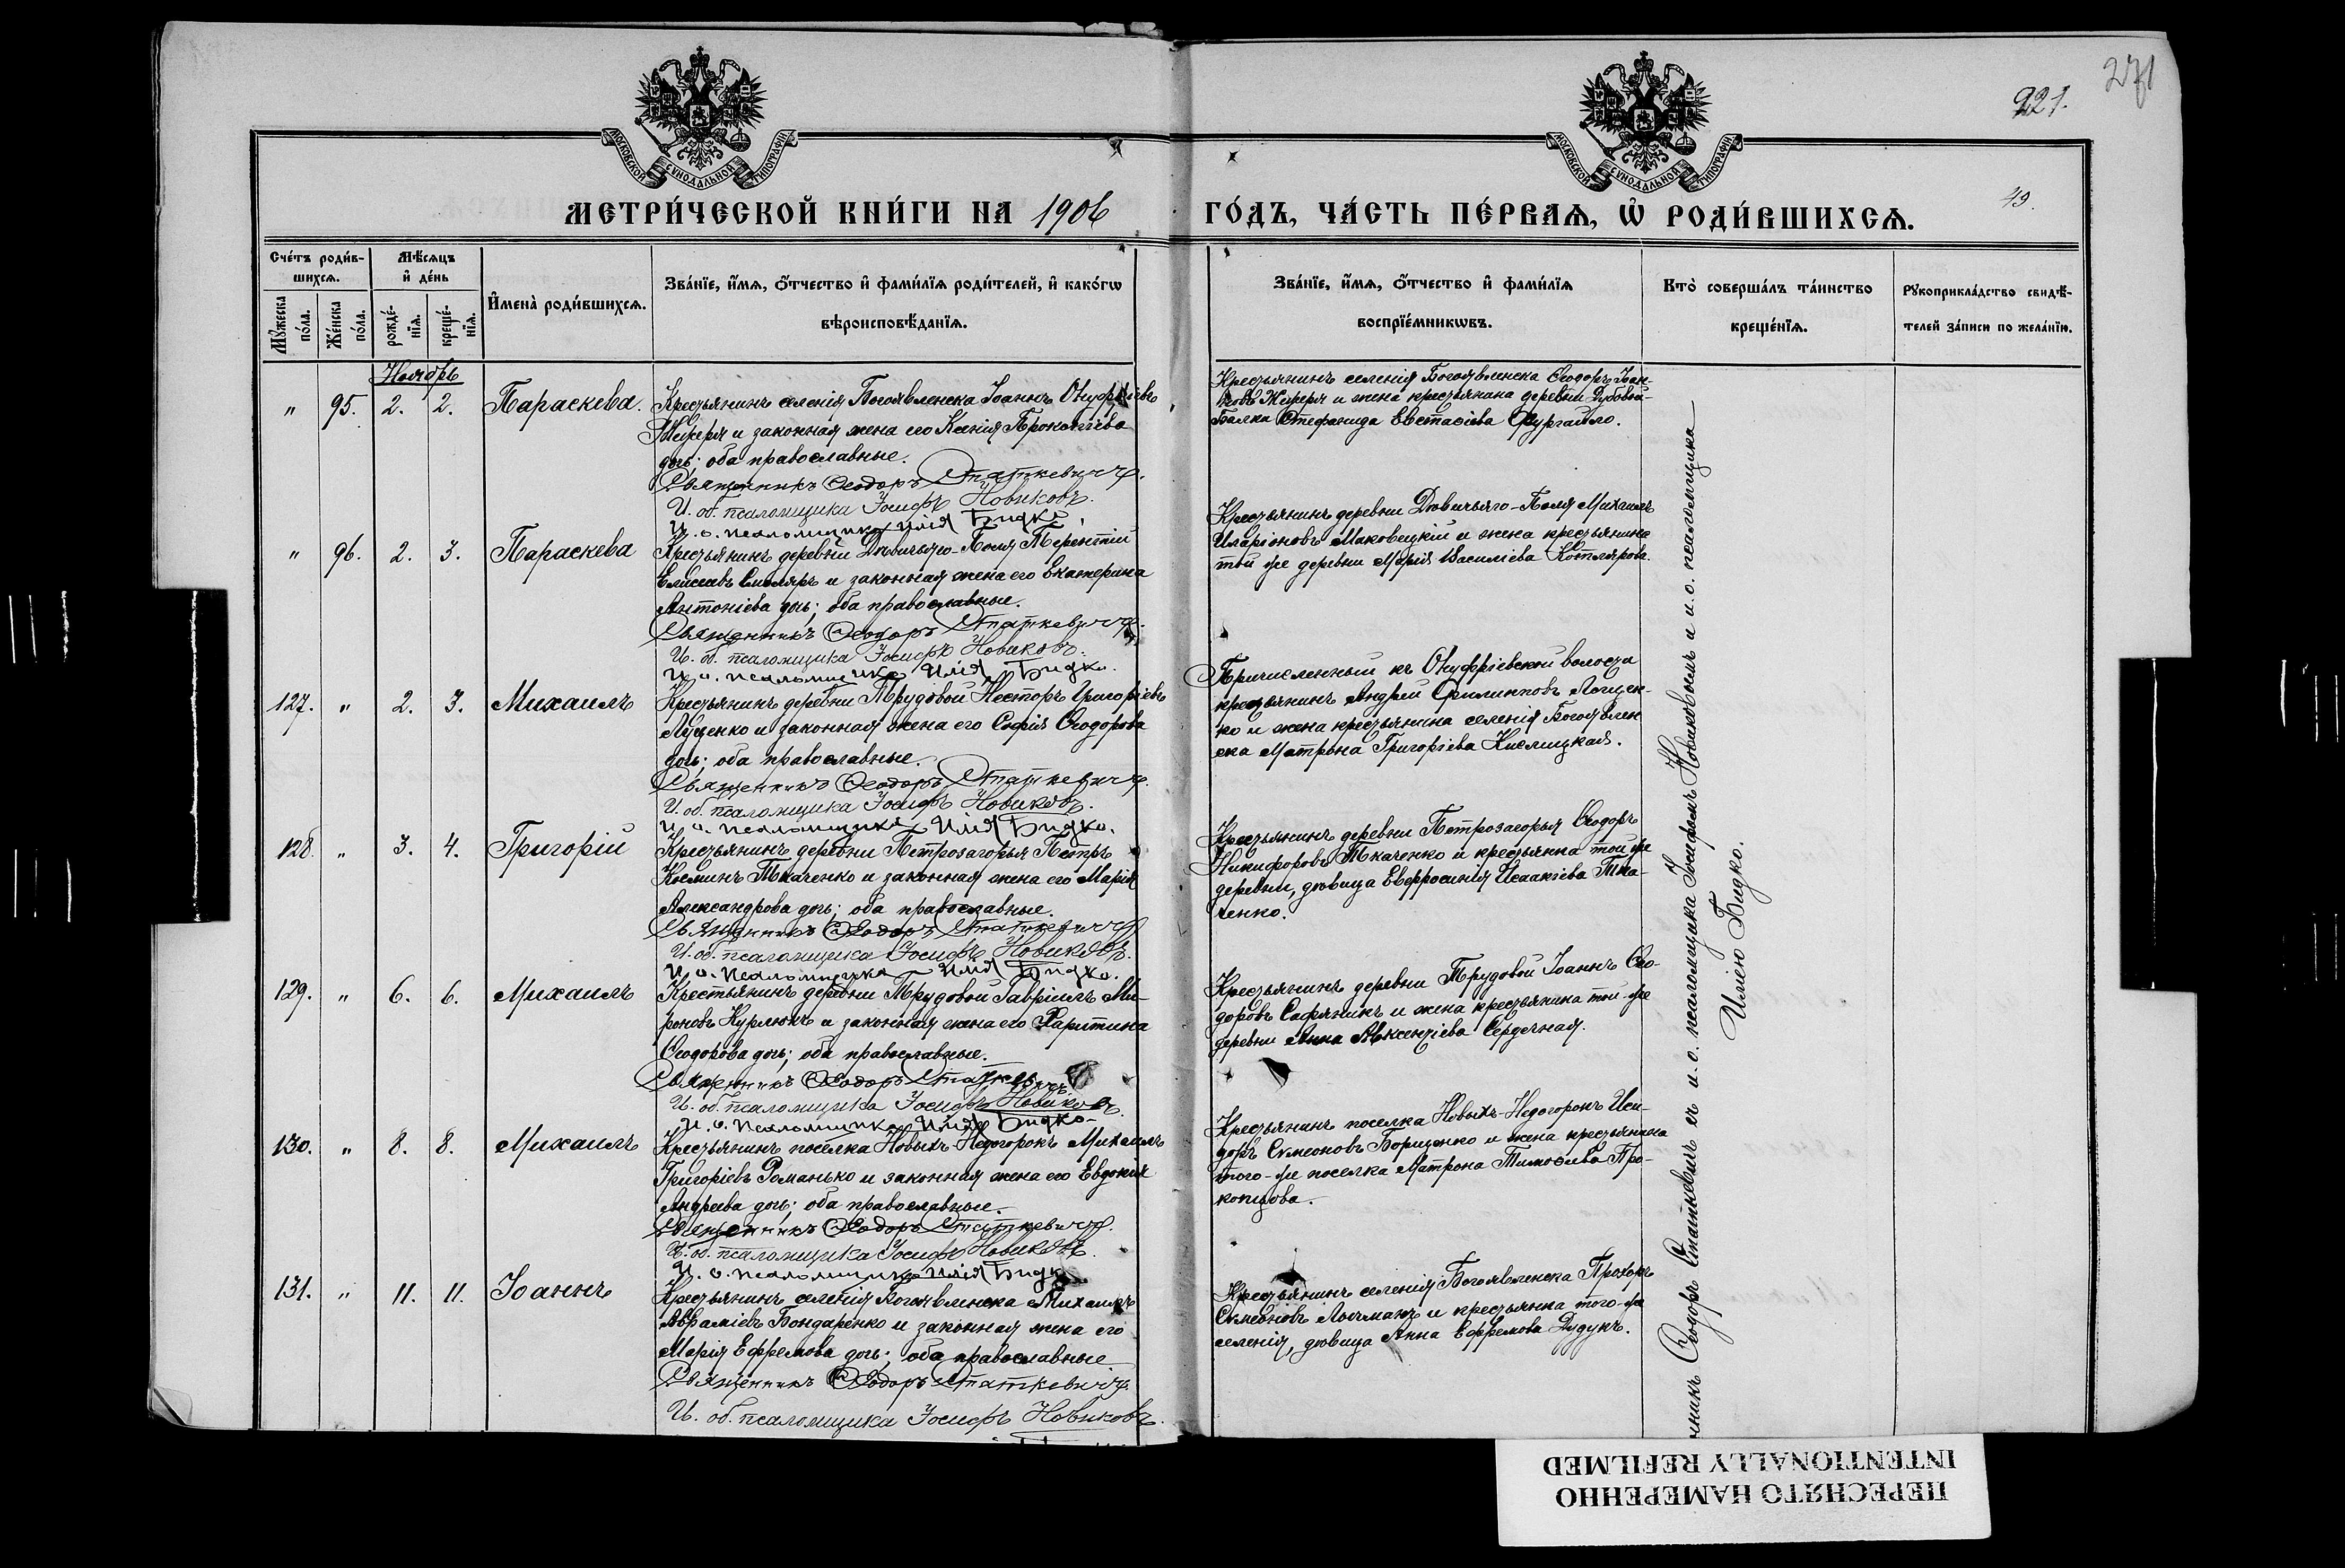 271
221.
49.
МОСКОВСКОЙ СѴНОДАЛЬНОЙ ТИПОГРАФІИ
МОСКОВСКОЙ СѴНОДАЛЬНОЙ ТИПОГРАФІИ
МЕТРИ́ЧЕСКОЙ КНИ́ГИ НА 1906 ГО́ДЪ, ЧА́СТЬ ПЕ́РВАѦ, Ѡ҆ РОДИ́ВШИХСѦ.
Сче́тъ роди́в-
шихсѧ.
Мꙋ́жеска
по́ла.
Же́нска
по́ла.
Мѣ́сѧцъ
и҆ де́нь
рожде́-
нїѧ.
креще́-
нїѧ.
И҆мена̀ роди́вшихсѧ.
Зва́нїе, и҆́мѧ, ѻ҆́тчество и҆ фами́лїѧ роди́телей, и҆ како́гѡ
вѣроисповѣ́данїѧ.
Зва́нїе, и҆́мѧ, ѻ҆́тчество и҆ фами́лїѧ
воспрїе́мникѡвъ.
Кто̀ соверша́лъ та́инство
креще́нїѧ.
Рꙋкоприкла́дство свидѣ́-
телей за́писи по жела́нїю.
Ноябрь
" 95. 2. 2. Параскева.
Крестьянинъ селенія Богоявленска Іоаннъ Онуфріевъ
и законная жена его Ксенія Прокопіева
дочь; оба православные.
Священникъ Ѳеодоръ Статкевичъ.
И. об. псаломщика Іосифъ Новиковъ.
И. о. псаломщика Илія Бидко.
Крестьянинъ селенія Богоявленска Ѳеодоръ Іоан-
новъ и жена крестьянина деревни Дубовой-
Балки Стефанида Евстафіева
" 96. 2. 3. Параскева
Крестьянинъ деревни Дѣвичьяго-Поля Терентій
Елисеевъ Смоляръ и законная жена его Екатерина
Антоніева дочь; оба православные.
Священникъ Ѳеодоръ Статкевичъ.
И. об. псаломщика Іосифъ Новиковъ.
И. о. псаломщика Илія Бидко.
Крестьянинъ деревни Дѣвичьяго-Поля Михаилъ
Иларіоновъ Маковецкій и жена крестьянина
той же деревни Марія Василіева Котлярова.
127. " 2. 3. Михаилъ
Крестьянинъ деревни Трудовой Несторъ Григоріевъ
Луценко и законная жена его Софія Ѳеодорова
дочь; оба православные.
Священникъ Ѳеодоръ Статкевичъ.
И. об. псаломщика Іосифъ Новиковъ.
И. о. псаломщика Илія Бидко.
Причисленный къ Онуфріевской волости
крестьянинъ Андрей Филипповъ Лощен-
ко и жена крестьянина селенія Богоявлен
ска Матрона Григоріева Кислицкая.
128. " 3. 4. Григорій
Крестьянинъ деревни Петрозагорья Петръ
Косминъ Ткаченко и законная жена его Марія
Александрова дочь; оба православные.
Священникъ Ѳеодоръ Статкевичъ
И. об. псаломщика Іосифъ Новиковъ.
И. о. псаломщика Илія Бидко.
Крестьянинъ деревни Петрозагорья Ѳеодоръ
Никифоровъ Ткаченко и крестьянка той же
деревни, дѣвица Евфросинія Исаакіева Тка-
ченко.
129. " 6. 6. Михаилъ
Крестьянинъ деревни Трудовой Гавріилъ Ми-
роновъ Курлюкъ и законная жена его Харитина
Ѳеодорова дочь; оба православные.
Священникъ Ѳеодоръ Статкевичъ
И. об. псаломщика Іосифъ Новиковъ.
И. о. псаломщика Илія Бидко
Крестьянинъ деревни Трудовой Іоаннъ Ѳео-
доровъ Сафянникъ и жена крестьянина той-же
деревни Анна Авксентіева Сердечная.
130. " 8. 8. Михаилъ
Крестьянинъ поселка Новыхъ-Недогорокъ Михаилъ
Григоріевъ Романько и законная жена его Евдокія
Андреева дочь; оба православные.
Священникъ Ѳеодоръ Статкевичъ.
И. об. псаломщика Іосифъ Новиковъ.
И. о. псаломщика Илія Бидко
Крестьянинъ поселка Новыхъ-Недогорокъ Иси-
доръ Симеоновъ Борщенко и жена крестьянина
того-же поселка Матрона Тимоѳеева Про-
копцова.
131. " 11. 11. Іоаннъ
Крестьянинъ селенія Богоявленска Михаилъ
Авраміевъ Бондаренко и законная жена его
Марія Ефремова дочь; оба православные
Священникъ Ѳеодоръ Статкевичъ.
И. об. псаломщика Іосифъ Новиковъ.
Крестьянинъ селенія Богоявленска Прохоръ
Симеоновъ Лоцманъ и крестьянка того-же
селенія, дѣвица Анна Ефремова Дудукъ.
Ѳеодоръ Статкевичъ съ и. о. псаломщика Іосифомъ Новиковымъ и и. о. псаломщика
Иліею Бидко.
ПЕРЕСНЯТО НАМЕРЕННО
INTENTIONALLY REFILMED